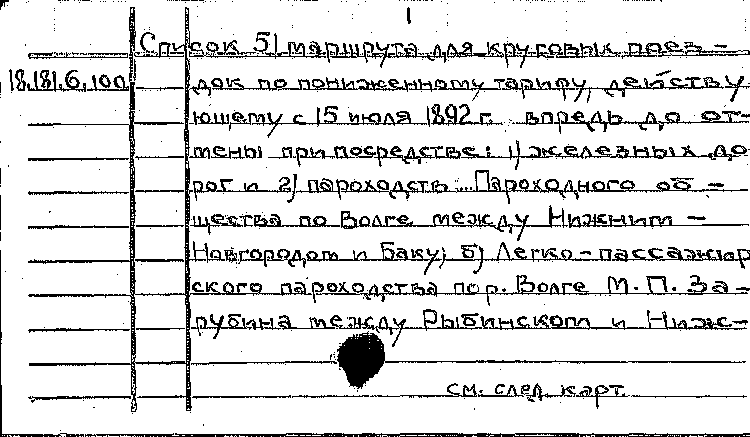 1
Список 51 маршрута для круговых поез-
18.181.6.100 док по пониженному тарифу, действу
ющему с 15 июля 1892 г. впредь до от-
мены при посредстве: 1) железных до
рог и 2) пароходств:...Пароходного об-
щества по Волге между Нижним-
Новгородом и Баку; б) Легко-пассажир
ского пароходства по р. Волге М.П. За-
рубина между Рыбинском и Ниж-
см. след. карт.